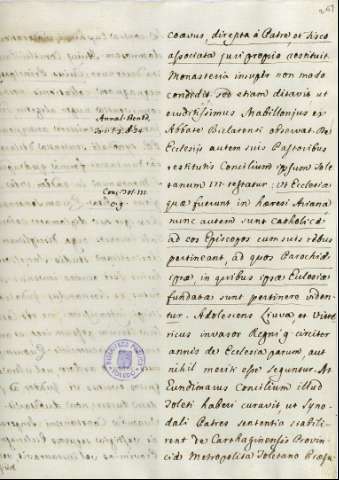 267
coavus, direpta à Patre, et Fisco
associata juri proprio restituit.
Monasteria insuper non modo
condidit, sed etiam ditavit ut
eruditissimus Mabillonjus ex
Abbate Biclarensi observat. De
Ecclesiis autem suis Pastoribus
restitutis Concilium ipsum Tole
tanum III testatur: ut Ecclesiæ
quæ fuerunt in hæresi Ariana
nunc autem sunt Catholicæ
ad eos Episcopos cum suis rebus
pertineant, ad quos Parochiæ
ipsæ, in quibus ipsæ Eclesiæ
fundatæ sunt pertinere viden
tur. Adolescens Liuva et Wite
ricus invasor Regni q circiter
annis de Ecclesia parum, aut
nihil meriti esse seguntur. At
Gundimarus Concilium illud
Toleti haberi curavit, ut Syno
dali Patres sententia stabili
rent de Carthaginensis Provin
ciæ Metropolita Toletano Episco
Annal. Bened.
Conc. Tol. III.
c. 9.
BIBLIOTECA PUBLICA
TOLEDO